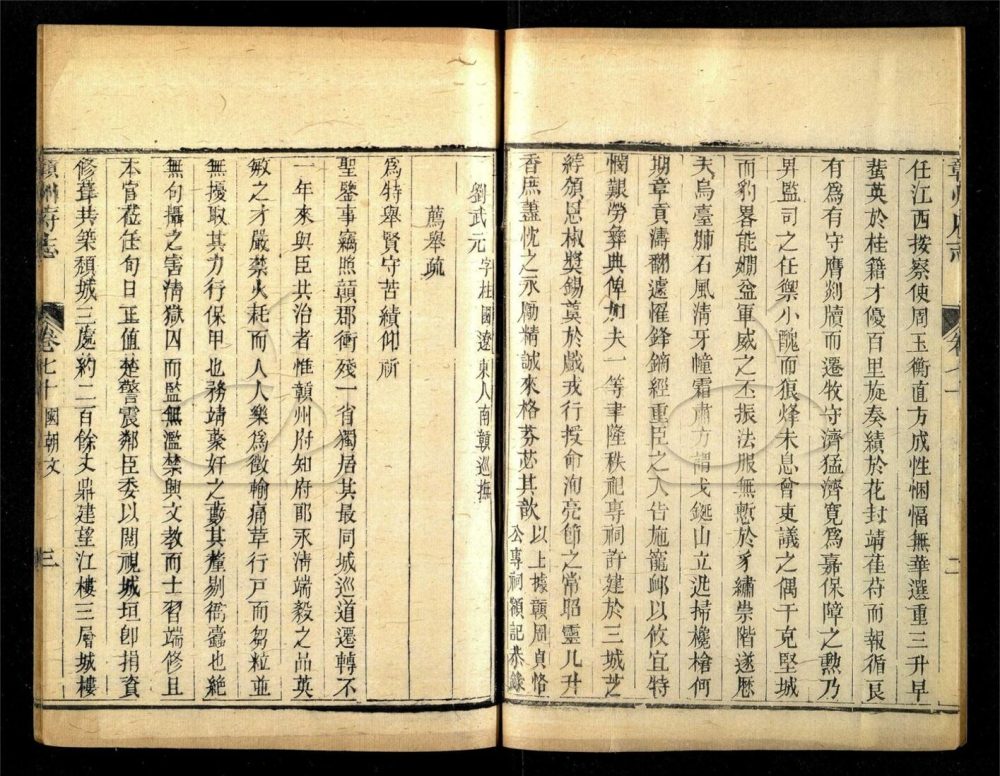 任江西按察使周玉衡直方成性悃愊無華選重三升早
蜚英於桂籍才優百里旋奏績於花封靖萑苻而報循良
有為有守膺剡牘而遷牧守濟猛濟寬為嘉保障之勲乃
昇監司之任禦小醜而狼烽未息曾東議之偶干克堅城
而豹畧能嫺益軍威之丕振法服無慙於豸繡崇階遂歷
夫烏臺獅石風清牙幢霜肅方謂戈鋋山立迅掃欃槍何
期章貢濤翻遽罹鋒鏑經重臣之入告施寵卹以攸宜特
憫艱勞彝典俾加夫一等聿隆秩祀專祠許建於三城芝
綍頒恩椒漿錫奠於戲戎行授命洵亮節之常昭靈几升
香庶藎忱之永勵精誠來格芬苾其歆
以上據贛周貞恪
公專祠額記恭錄
劉武元字柱國遼東人南贛巡撫
薦舉疏
為特舉賢守苦績仰祈
聖鑒事竊照贛郡衝殘一省獨居其最同城巡道遷轉不
一年來與臣共治者惟贛州府知府耶永清端毅之品英
敏之才嚴禁火耗而人人樂為徵輸痛革行戸而芻粒並
無擾取其力行保甲也務靖藁奸之藪其釐剔衙蠹也絶
無勾攝之害清獄囚而監無濫禁興文教而士習端修且
本官蒞任旬日正值楚警震鄰臣委以閱視城垣卽捐資
修葺共築頽城三處約二百餘丈鼎建望江樓三層城樓
贛州府志
卷七十
國朝文
三